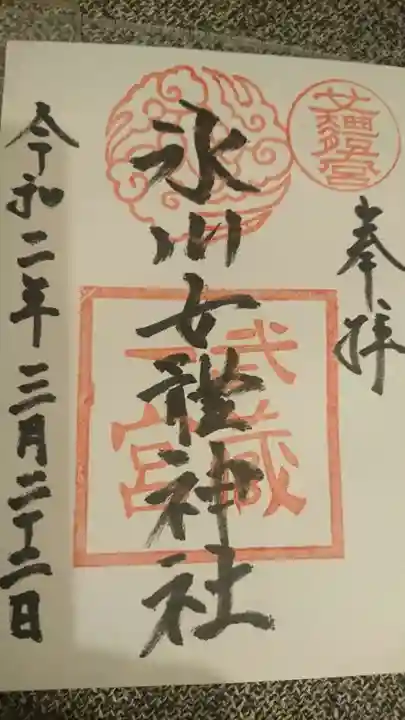 奉拝
氷川女體神社
武蔵
一宮
令和二年三月二十二日